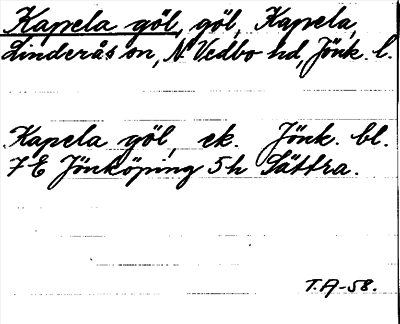 Kapela göl, göl, Kapela,
Linderås sn, N. Vedbo hd, Jönk. l.
Kapela göl, ek. Jönk. bl.
7 E Jönköping 5 h Sättra.
T.A-58.